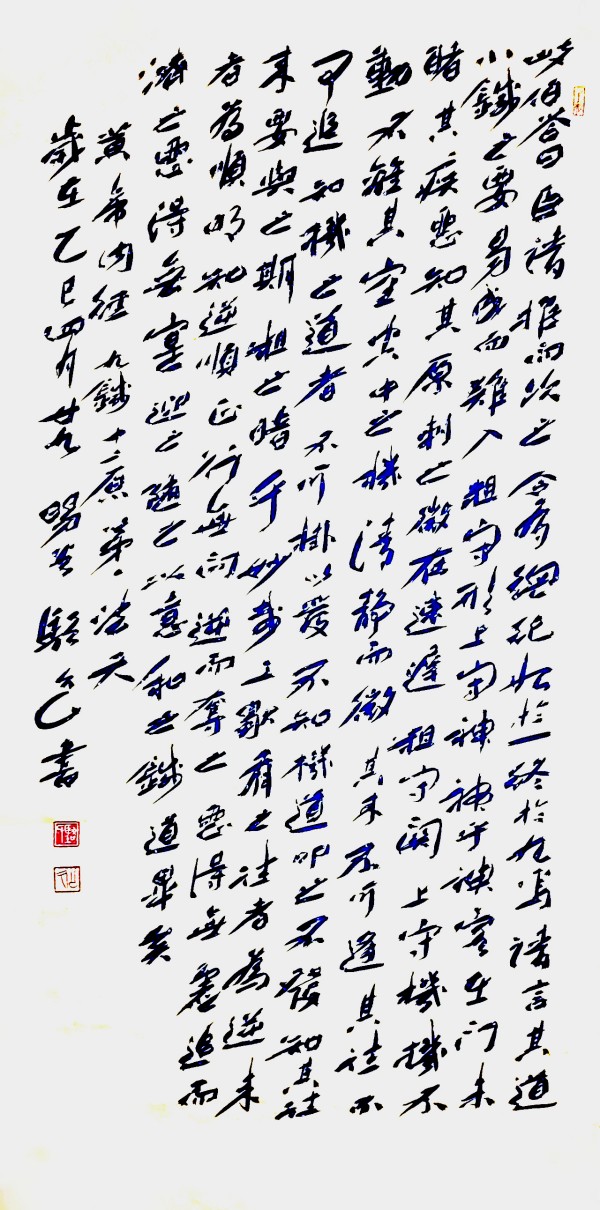 岐伯答曰臣請推而次之令有綱紀始於一終於九焉請言其道
小鍼之要易陳而難入粗守形上守神神乎神客在門未
睹其疾惡知其原刺之微在速遲粗守關上守機機不
動不離其空空中之機清靜而微其來不可逢其往不
可追知機之道者不可掛以發不知機道叩之不發知其往
來要與之期粗之暗乎妙哉工獨有之往者為逆來
者為順明知逆順正行無問逆而奪之惡得無虛追而
濟之惡得無實迎之隨之以意和之鍼道畢矣
黃帝內經九鍼十二原第一法天
歲在乙巳四月廿九 駱 書